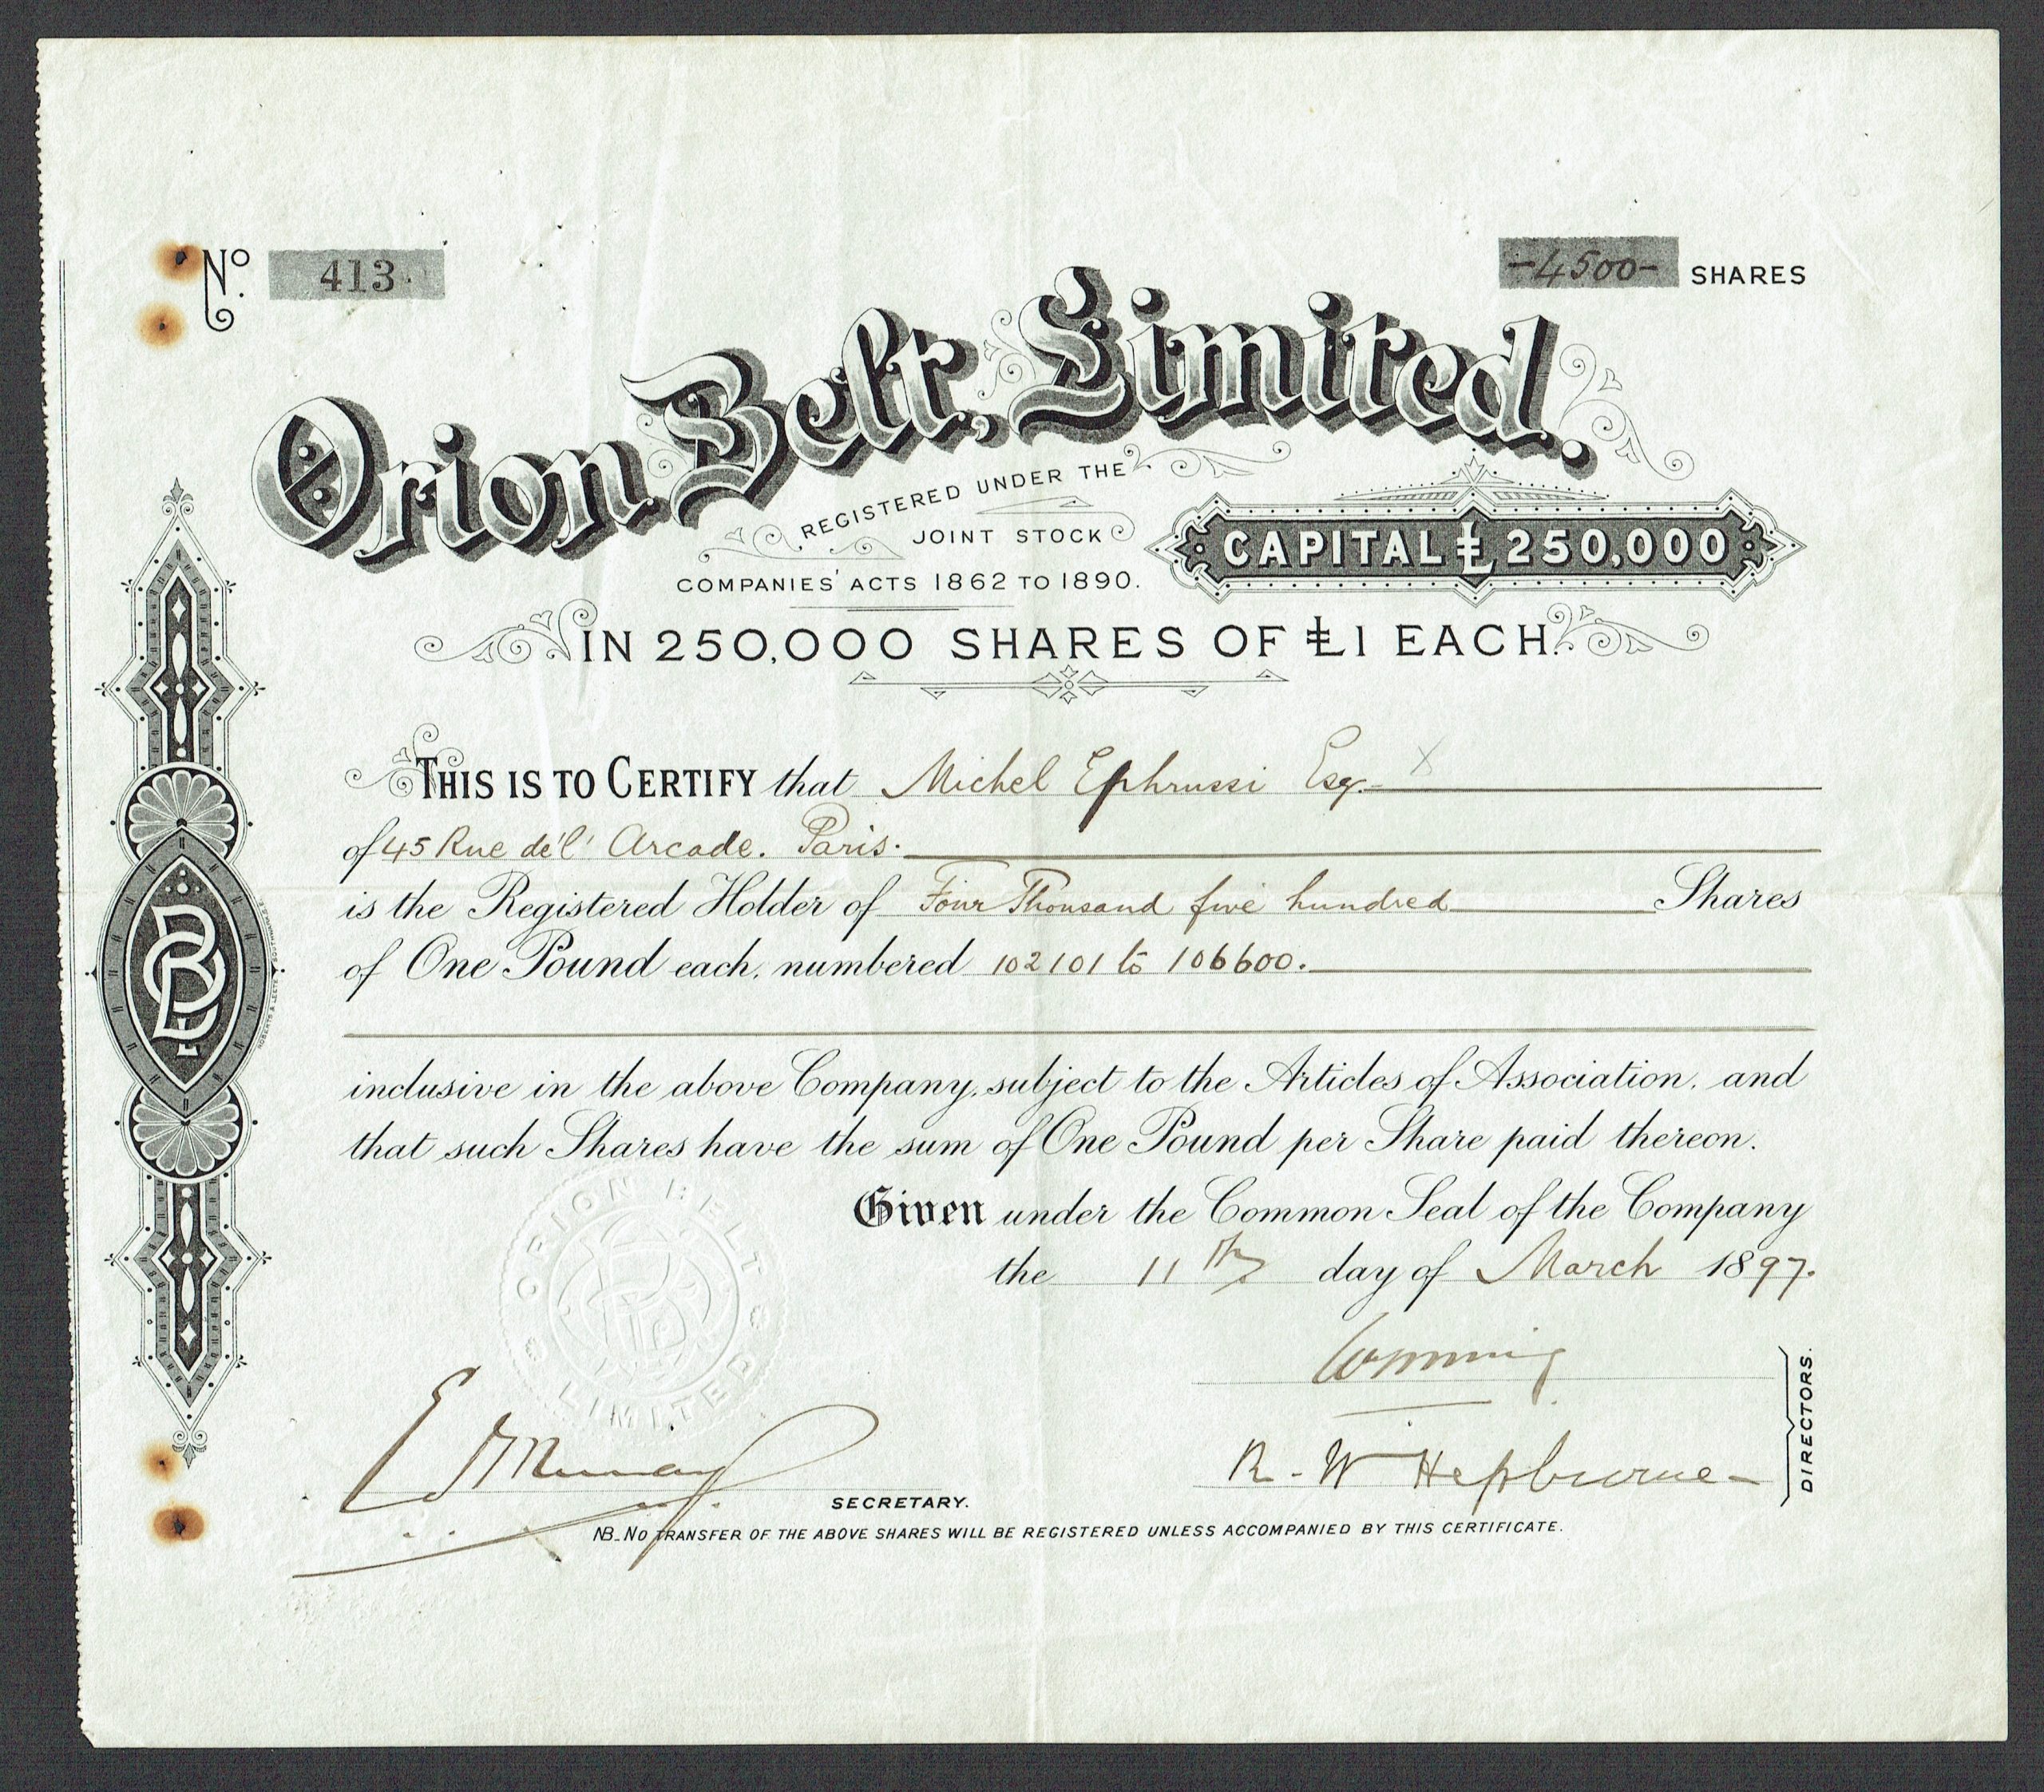 No. 413
-4500- SHARES
Orion Belt, Limited.
REGISTERED UNDER THE
JOINT STOCK
COMPANIES' ACTS 1862 TO 1890.
CAPITAL £250,000
IN 250,000 SHARES OF £1 EACH.
THIS IS TO CERTIFY that Michel Ephrussi Esq. X
of 45 Rue de l' Arcade. Paris.
is the Registered Holder of Four Thousand five hundred Shares
of One Pound each, numbered 102101 to 106600.
inclusive in the above Company, subject to the Articles of Association, and
that such Shares have the sum of One Pound per Share paid thereon.
Given under the Common Seal of the Company
the 11th day of March 1897.
ORION BELT
LIMITED
R. W Hepburne
DIRECTORS.
SECRETARY.
NB_NO TRANSFER OF THE ABOVE SHARES WILL BE REGISTERED UNLESS ACCOMPANIED BY THIS CERTIFICATE.
OBL